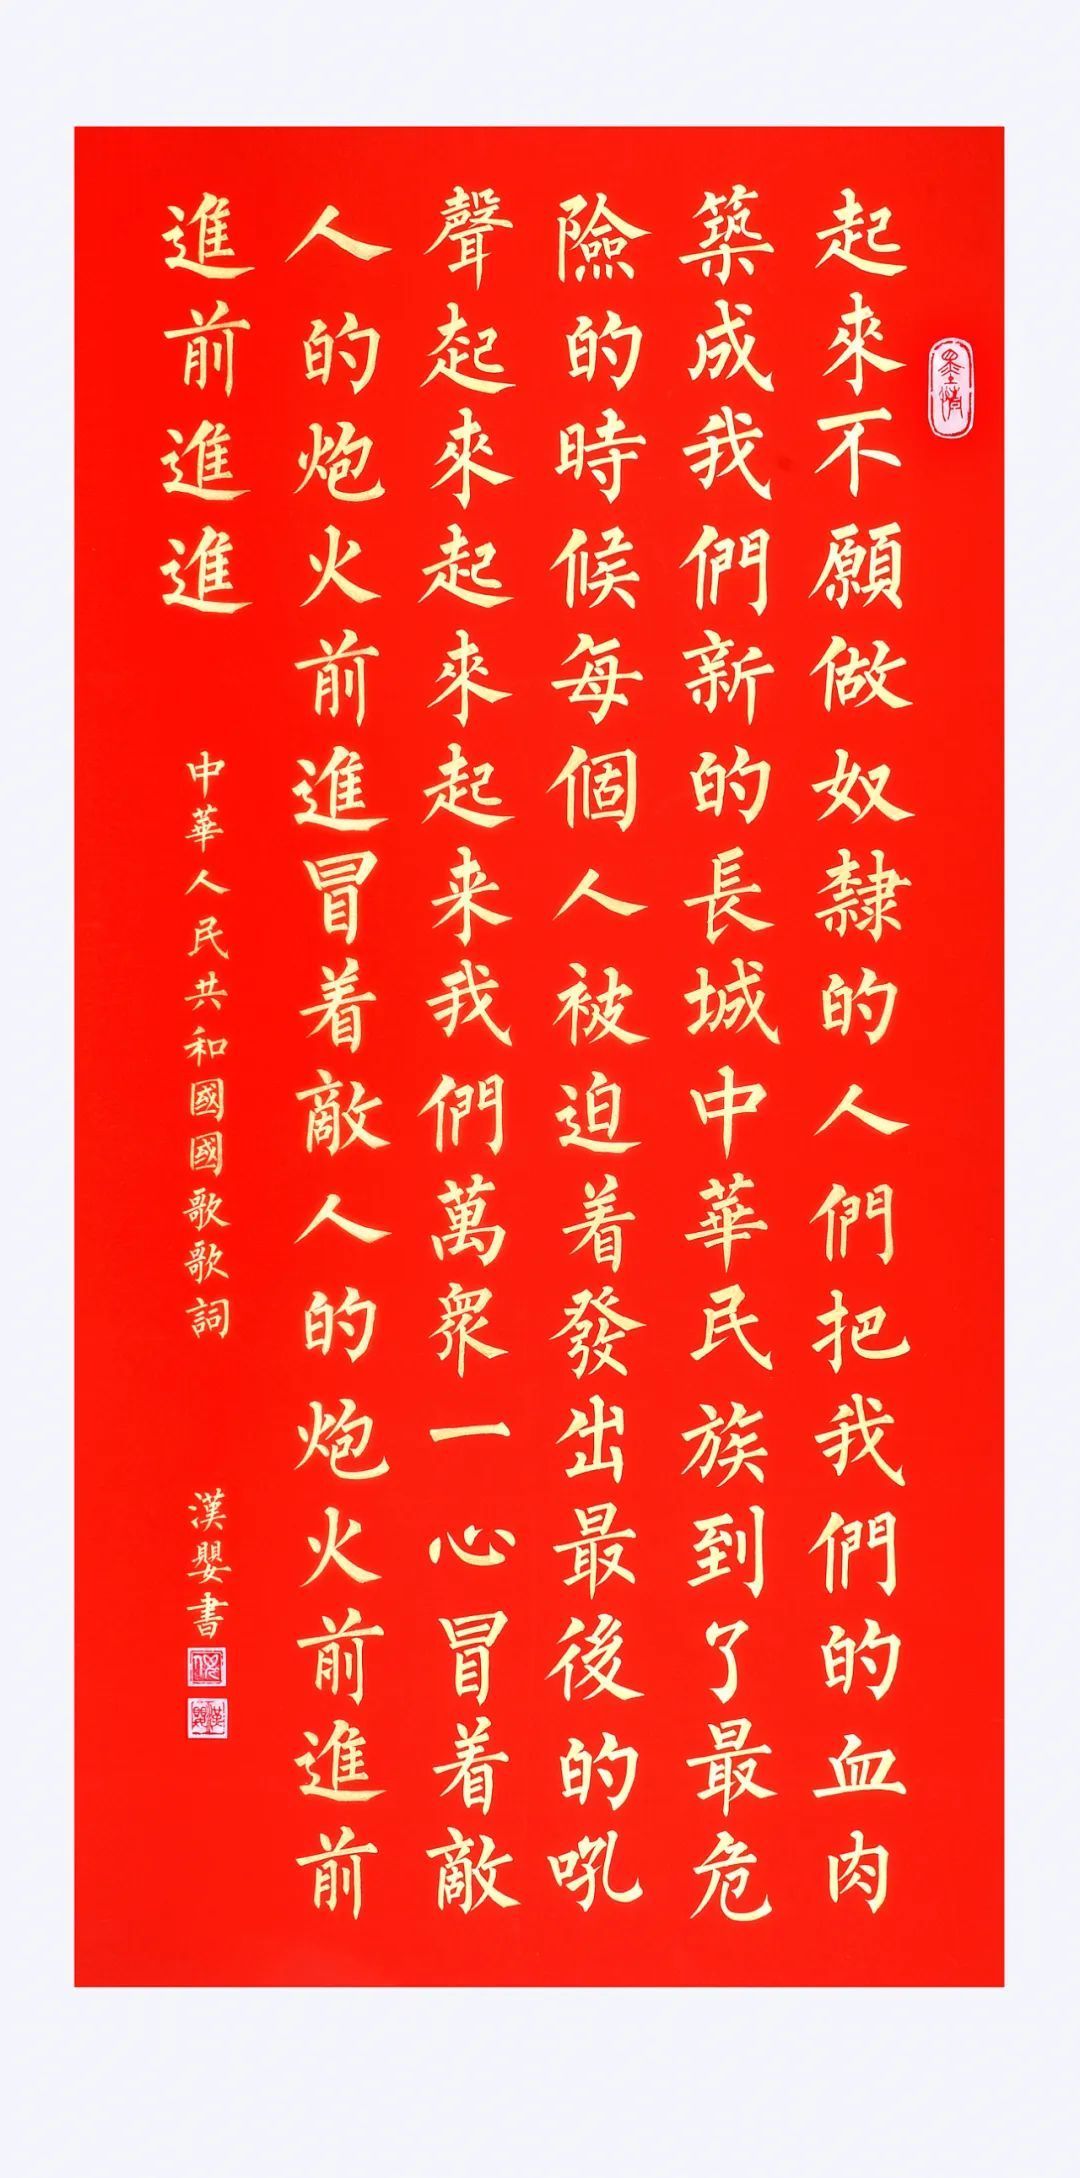 墨情
起來不願做奴隸的人們把我們的血肉
築成我們新的長城中華民族到了最危
險的時候每個人被迫着發出最後的吼
聲起來起來起来我們萬眾一心冒着敵
人的炮火前進冒着敵人的炮火前進前
進前進進
中華人民共和國國歌歌詞
漢嬰書